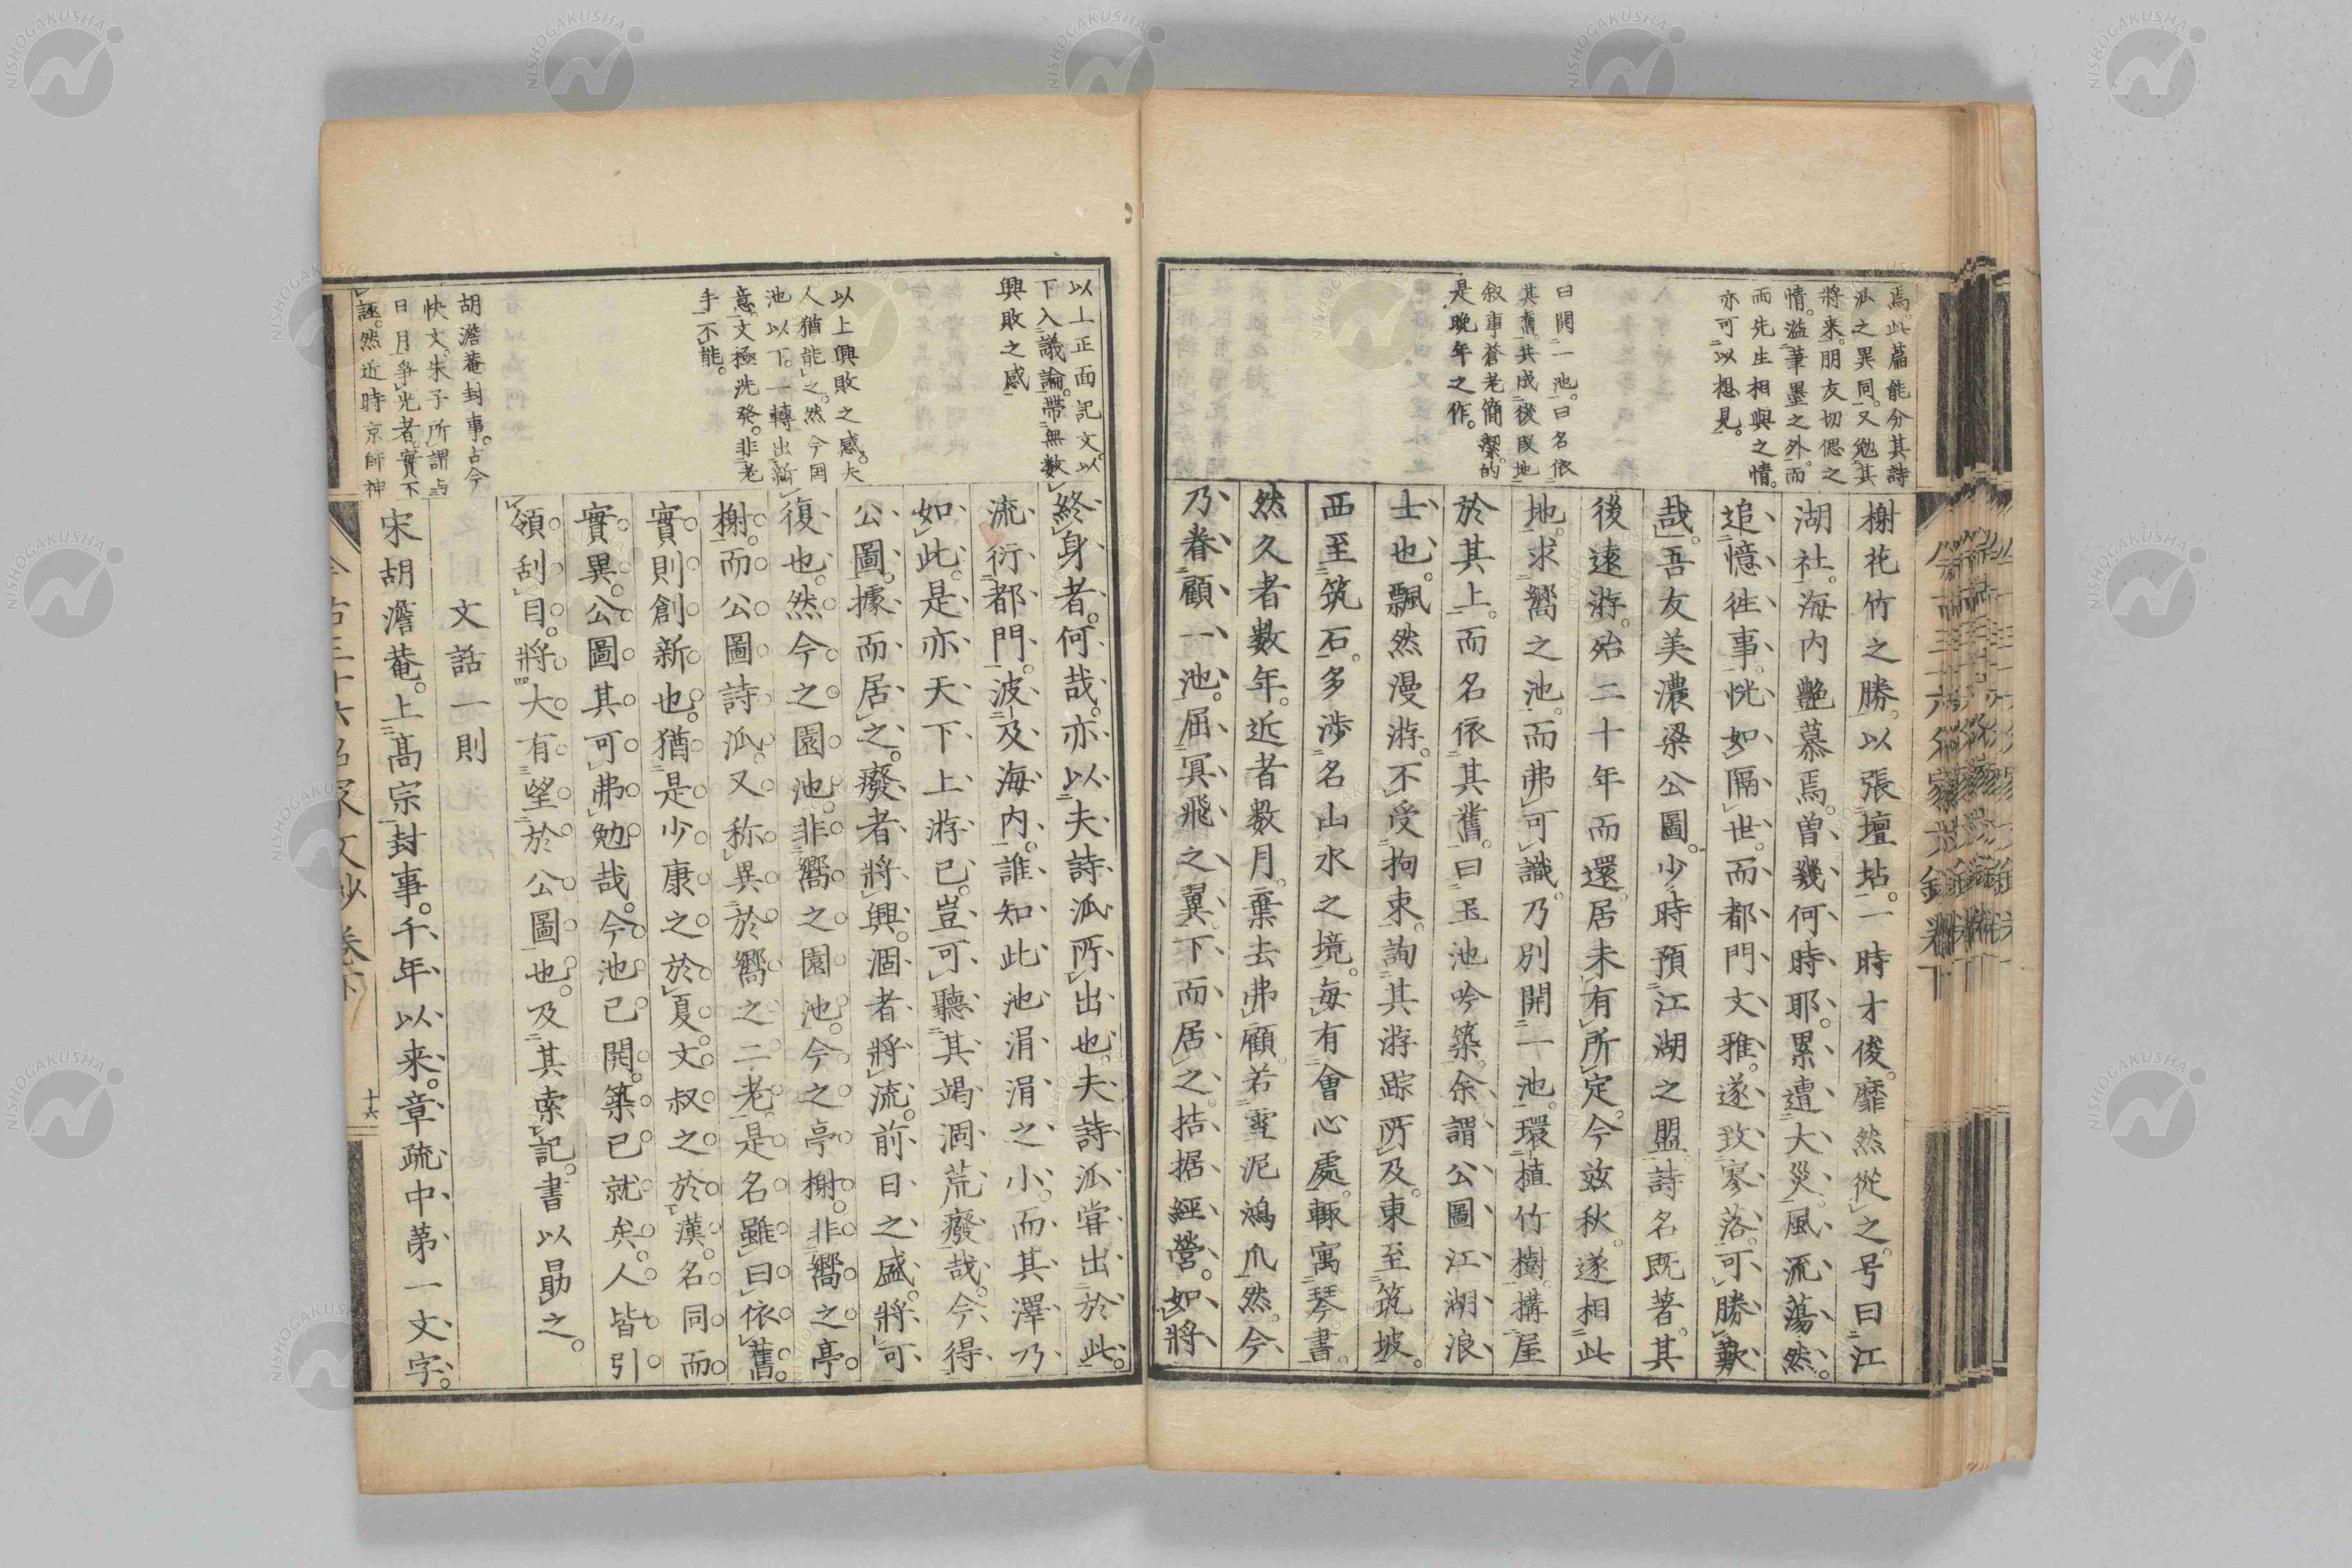 焉。此篇能分其詩
泒之異同。又勉其
將来。朋友切偲之
情。溢筆墨之外。而
而先生相與之情。
亦可以想見。
曰開一池。曰名依
其舊。其成後段地
叙事蒼老簡潔。的
是晩年之作。
榭花竹之勝。以張壇坫。一時才俊。靡然從之。号曰江
湖社。海内艶慕焉。曽幾何時耶。累遭大災。風流蕩然。
追憶徃事。恍如隔世。而都門文雅。遂致寥落。可勝歎
哉。吾友美濃梁公圖。少時預江湖之盟。詩名既著。其
後遠游。殆二十年而還。居未有所定。今玆秋。遂相此
地。求嚮之池。而弗可識。乃別開一池。環植竹樹。搆屋
於其上。而名依其舊。曰玉池吟築。余謂公圖江湖浪
士也。飄然漫游。不受拘束。詢其游踪所及。東至筑坡。
西至筑石。多渉名山水之境。毎有會心處。輙寓琴書。
然久者数年。近者数月。棄去弗顧。若雪泥鴻爪然。今
乃眷顧一池。屈冥飛之翼。下而居之。拮据經營。如將
以上正面記文。以
下入議論。帶無数
興敗之感
以上興敗之感。夫
人猶能之。然今囯
池以下。一轉出新
意。文極洗癸。非老
手不能。
胡澹菴封事。古今
快文。朱子所謂与
日月爭光者。實不
誣。然近時京師神
終身者。何哉。亦以夫詩泒所出也。夫詩泒甞出於此。
流衍都門。波及海内。誰知此池涓涓之小。而其澤乃
如此。是亦天下上游已。豈可聽其竭涸荒廢哉。今得
公圖。據而居之。廢者將興。涸者將流。前日之盛。將可
復也。然今之園池。非嚮之園池。今之亭榭。非嚮之亭
榭。而公圖詩泒。又称異於嚮之二老。是名雖曰依舊。
實則創新也。猶是少康之於夏。文叔之於漢。名同而
實異。公圖其可弗勉哉。今池已開。築已就矣。人皆引
領刮目。將大有望於公圖也。及其索記。書以勗之。
文話一則
宋胡澹菴。上高宗封事。千年以来。章疏中第一文字。
今古三十六名家文鈔 卷下
十六